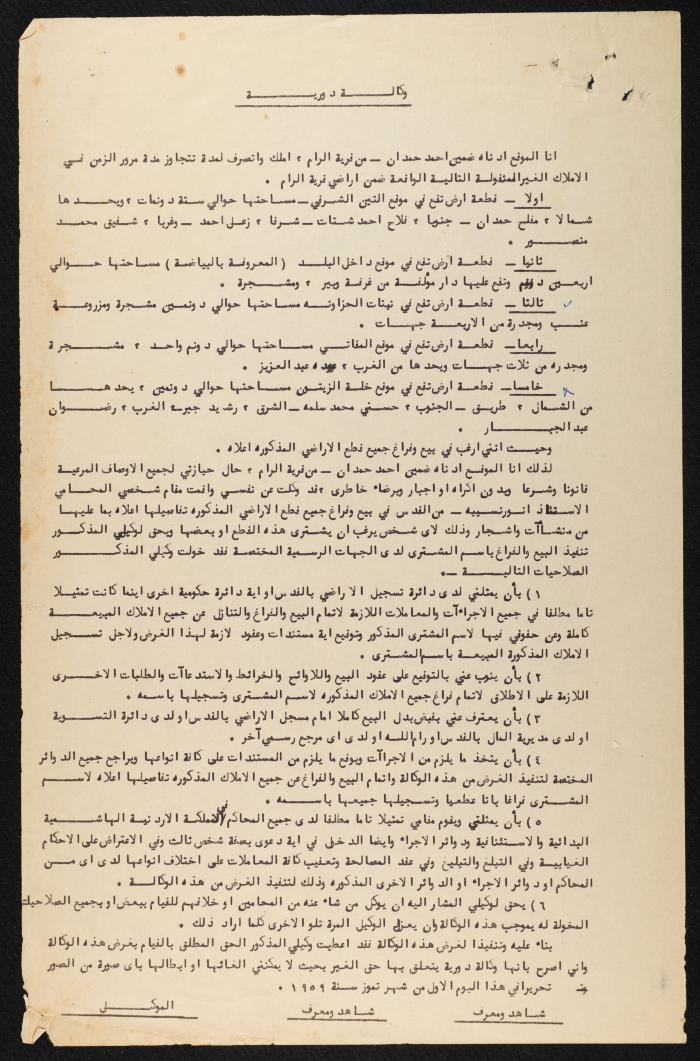 وكالة دورية
انا الموقع ادناه ضمين احمد حمدان – من قرية الرام ؟ املك واتصرف لمدة تتجاوز مدة مرور الزمن فــي
الاملاك الغير المنقولة التالية الواقعة ضمن اراضي قرية الرام .
اولا – قطعة ارض تقع في موقع التين الشرقي – مساحتها حوالي ستة دونمات ؟ ويحدها
شمالا ؟ مفلح حمدان – جنوبا ؟ فلاح احمد شتات – شرقا ؟ زعل احمد – وغربا ؟ شفيق محمد
منصور .
ثانيا – قطعة ارض تقع في موقع داخل البلد ( المعروفة بالبياضة ) مساحتها حوالي
اربعين د وتقع عليها دار مؤلفة من غرفة وبير ؟ ومشجرة .
ثالثا – قطعة ارض تقع في نيتات الحزاونه مساحتها حوالي دونمين مشجرة ومزروعة
عنب ومجدرة من الاربعة جهات .
رابعا – قطعة ارض تقع في موقع المقاتي مساحتها حوالي دونم واحد ؟ مشجرة
ومجدره من ثلاث جهات ويحدها من الغرب ؟ عبد العزيز .
خامسا – قطعة ارض تقع في موقع خلة الزيتون مساحتها حوالي دونمين ؟ يحدها
من الشمال ؟ طريق – الجنوب ؟ حسني محمد سلمه – الشرق ؟ رشيد جبر الغرب ؟ رضوان
عبد الجبار .
وحيث انني ارغب في بيع وفراغ جميع قطع الاراضي المذكوره اعلاه .
لذلك انا الموقع ادناه ضمين احمد حمدان – من قرية الرام ؟ حال حيازتي لجميع الاوصاف المرعية
قانونا وشرعا وبدون اكراه او اجبار وبرضاء خاطرى ؟ قد وكلت عن نفسي واقمت مقام شخصي المحامي
الاستاذ انور نسيبه – من القدس في بيع وفراغ جميع قطع الاراضي المذكوره تفاصيلها اعلاه بما عليها
من منشاآت واشجار وذلك لاى شخص يرغب ان يشترى هذه القطع او بعضها ويحق لوكيلي المذكور
تنفيذ البيع والفراغ باسم المشترى لدى الجهات الرسمية المختصة فقد خولت وكيلي المذكور
الصلاحيات التالية –.
١ ) بأن يمثلني لدى دائرة تسجيل الاراضي بالقدس او اية دائرة حكومية اخرى اينما كانت تمثيلا
تاما مطلقا في جميع الاجراآت والمعاملات اللازمة لاتمام البيع والفراغ والتنازل عن جميع الاملاك المبيعة
كاملة وعن حقوقي فيها لاسم المشترى المذكور وتوقيع اية مستندات وعقود لازمة لهذا الغرض ولاجل تسجيل
الاملاك المذكورة المبيعة باسم المشترى .
٢ ) بأن ينوب عني بالتوقيع على عقود البيع واللاوائح والخرائط والاستدعاآت والطلبات الاخرى
اللازمة على الاطلاق لاتمام فراغ جميع الاملاك المذكوره لاسم المشترى وتسجيلها باسمه .
٣ ) بأن يعترف عني بقبض بدل البيع كاملا امام مسجل الاراضي بالقدس او لدى دائرة التسوية
او لدى مديرية المال بالقدس او رام الله او لدى اى مرجع رسمي آخر .
٤ ) بأن يتخذ ما يلزم من الاجراآت ويوقع ما يلزم من المستندات على كافة انواعها ويراجع جميع الدوائر
المختصة لتنفيذ الغرض من هذه الوكالة واتمام البيع والفراغ عن جميع الاملاك المذكوره تفاصيلها اعلاه لاسم
المشترى فراغا باتا قطعيا وتسجيلها جميعها باسمه .
٥ ) بأن يمثلني ويقوم مقامي تمثيلا تاما مطلقا لدى جميع المحاكم في المملكة الاردنية الهاشمية
البدائية والاستئنافية ودوائر الاجراء وايضا الدخل في اية دعوى بصفة شخص ثالث وفي الاعتراض على الاحكام
الغيابية وفي التبلغ والتبليغ وفي عقد المصالحة وتعقيب كافة المعاملات على اختلاف انواعها لدى اى من
المحاكم او دوائر الاجراء او الدوائر الاخرى المذكوره وذلك لتنفيذ الغرض من هذه الوكالة .
٦ ) يحق لوكيلي المشار اليه ان يوكل من شاء عنه من المحامين او خلافهم للقيام ببعض او بجميع الصلاحيات
المخولة له بموجب هذه الوكالة وان يعزل الوكيل المرة تلو الاخرى كلما اراد ذلك .
بناء عليه وتنفيذا لغرض هذه الوكالة فقد اعطيت وكيلي المذكور الحق المطلق بالقيام بغرض هذه الوكالة
واني اصرح بانها وكالة دورية يتعلق بها حق الغير بحيث لا يمكنني الغائها او ابطالها باى صورة من الصور
وقد تحرر اني هذا اليوم الاول من شهر تموز سنة ١٩٥٩ .
شاهد ومعرف شاهد ومعرف الموكل